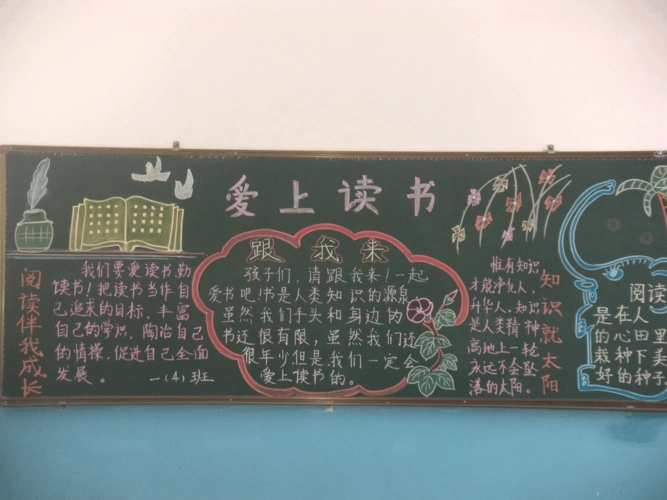 爱上读书
阅读伴我成长
我们要爱读书勤
读书！把读书当作自
己追求的目标，丰富
自己的学识，陶冶自己
的情操，促进自己全面
发展。
一（4）班
跟我来
孩子们，请跟我来！一起
爱书吧！书是人类知识的源泉
虽然我们手头和身边的
书还很有限，虽然我们还
很年少但是我们一定会
爱上读书的。
惟有知识
才能净化人，
升华人。知识
是人类精神
高地上一轮
永远不会坠
落的太阳。
知识就太阳
阅读
是在人
的心田里
栽种下
好的种子